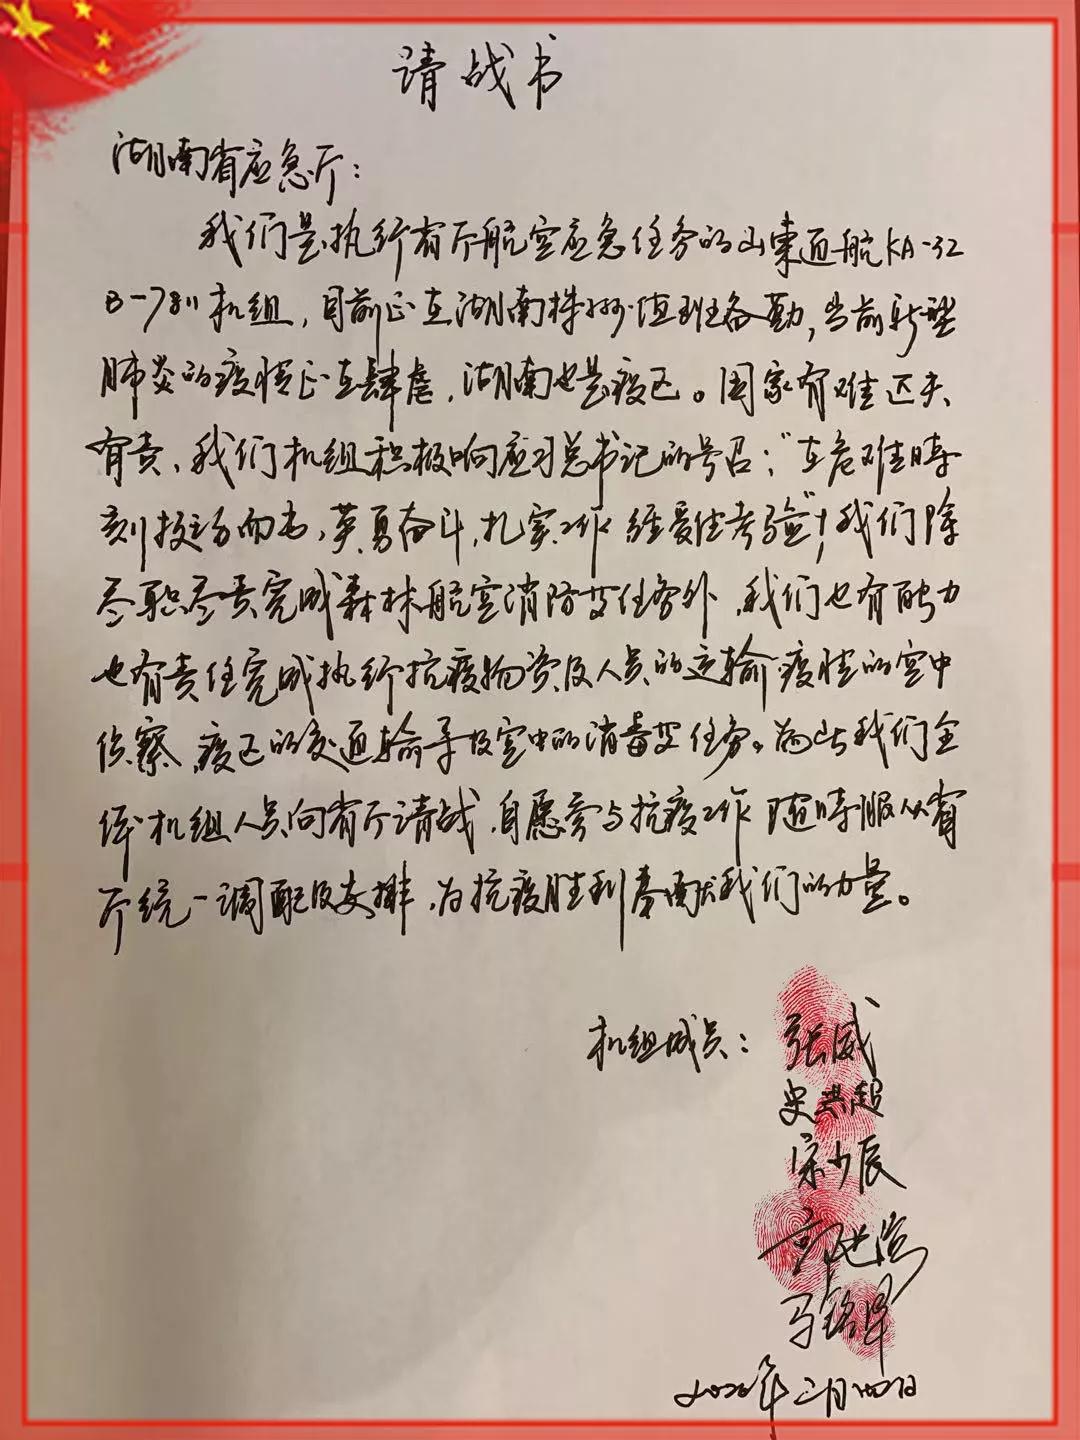 请战书
湖南省应急厅：
我们是执行省厅航空应急任务的山东通航KA-32
B-7811机组，目前正在湖南株洲值班备勤，当前新型
肺炎的疫情正在肆虐，湖南也是疫区。国家有难匹夫
有责，我们机组积极响应习总书记的号召："在危难时
刻挺身而出，英勇奋斗，扎实工作 经受住考验"！我们除
尽职尽责完成森林航空消防等任务外，我们也有能力
也有责任完成执行抗疫物资及人员的运输 疫情的空中
侦察 疫区的交通输导及空中的消毒等任务。为此我们全
体机组人员向省厅请战，自愿参与抗疫工作 随时服从省
厅统一调配及安排，为抗疫胜利奉献我们的力量。
机组成员：张威
史洪超
宋少辰
马铭泽
2020年二月四日